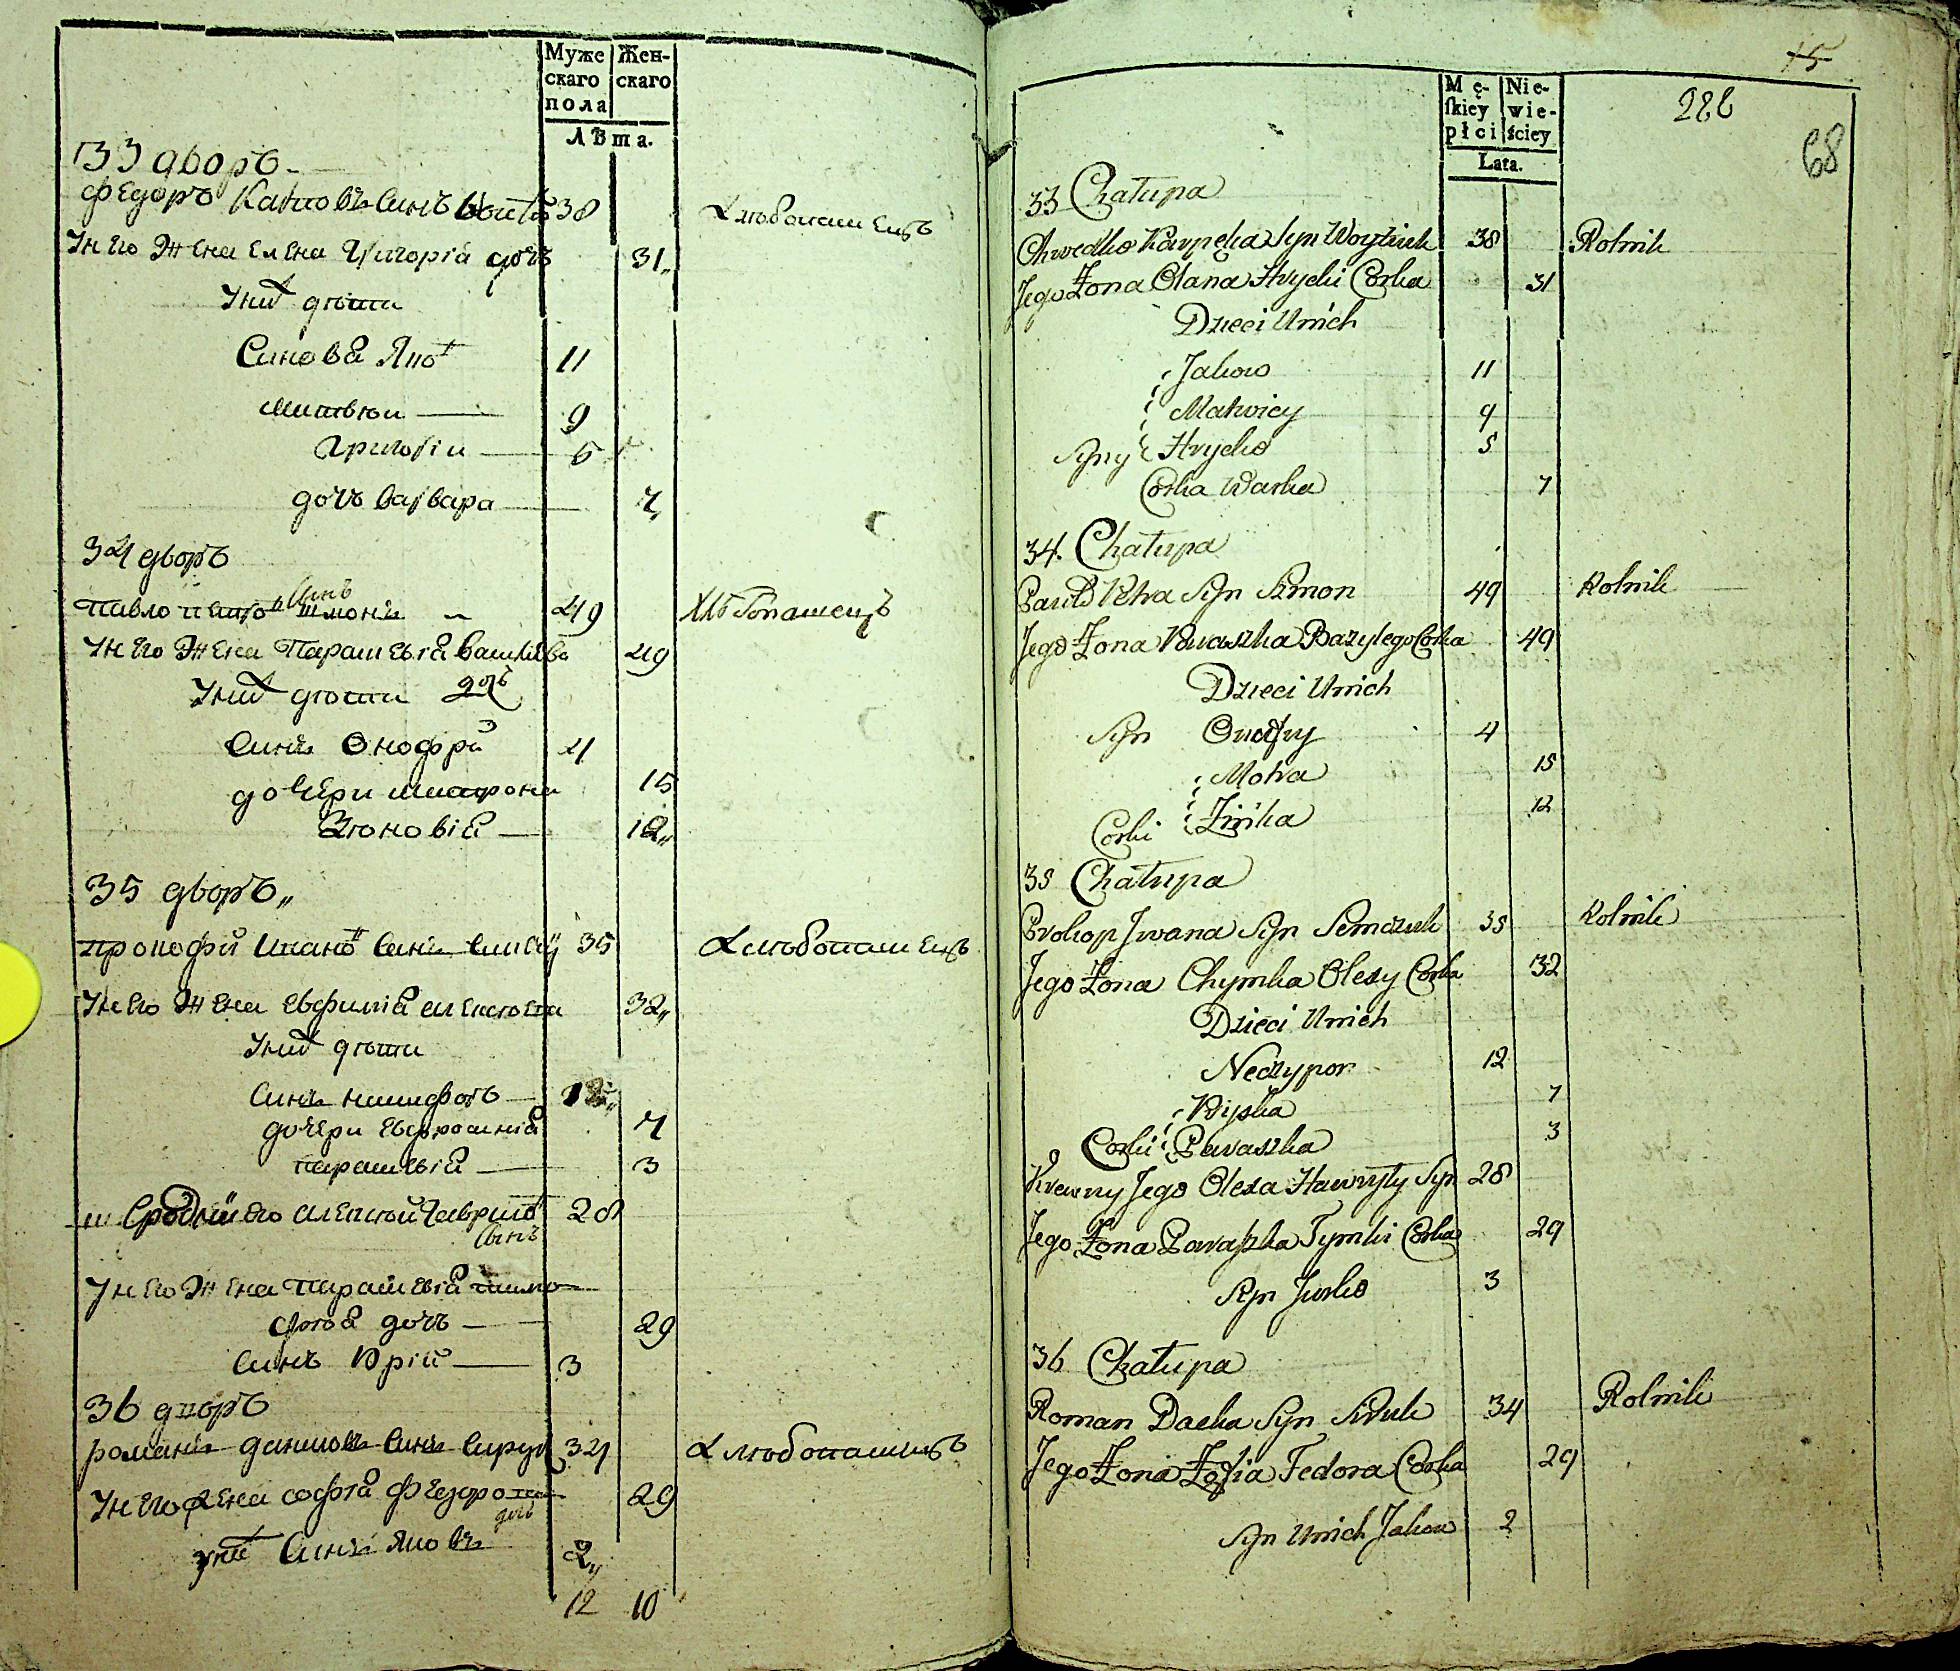 Муже
скаго
пола
Жен-
скаго
Лѣта.
33 дворъ
Федоръ синъ 38
У него жена Елена Григорія дочъ 31
У нихъ дѣти
Синова Яковъ 11
Матвѣи 9
Григоріи 5
дочъ Варвара 7
Хлѣбопашецъ
34 дворъ
Павло Петровъ синъ Шимонъ 49
У него жена Парасковія Васильева дочъ 49
У нихъ дѣти
Синъ Онофрій 4
дочери 15
Зѣновія 12
Хлѣбопашецъ
35 дворъ
Прокофій Ивановъ синъ 35
У него жена Евфимія Алексѣева 32
У нихъ дѣти
Синъ Никифоръ 12
дочери Евфросинія 7
Парасковія 3
и сродній его Алексѣй Гавриловъ синъ 28
У него жена Парасковія Тимо-
фѣева дочъ 29
Синъ Юрій 3
Хлѣбопашецъ
36 дворъ
Романъ Даниловъ синъ 34
У него жена Софія Федорова дочъ 29
У нихъ синъ Яковъ 2
12 10
Хлѣбопашецъ
15
Mę-
skiey
płci
Nie-
wie-
ściey
Lata.
282
68
33 Chałupa
Chwedko Karpeka Syn Woytiuk 38 Rolnik
Jego Żona Olana Hrycki Corka 31
Dzieci U nich
Jakow 11
Matwiey 9
Syny Hrycko 5
Corka Warka 7
34. Chałupa
Pawło Petra Syn Szmon 49 Rolnik
Jego Żona Paraszka Bazylego Corka 49
Dzieci U nich
Syn Onofry 4
Motra 15
Corki Zińka 12
35 Chałupa
Prokop Jwana Syn Semczuk 35 Rolnik
Jego Żona Chymka Olexy Corka 32
Dzieci U nich
Neczypor 12
Pryska 7
Corki Paraszka 3
Krewny Jego Olexa Hawryły Syn 28
Jego Żona Paraszka Tymki Corka 29
Syn Jurko 3
36 Chałupa
Roman Dacka Syn 34 Rolnik
Jego Żona Zofia Fedora Corka 29
Syn U nich Jakow 2